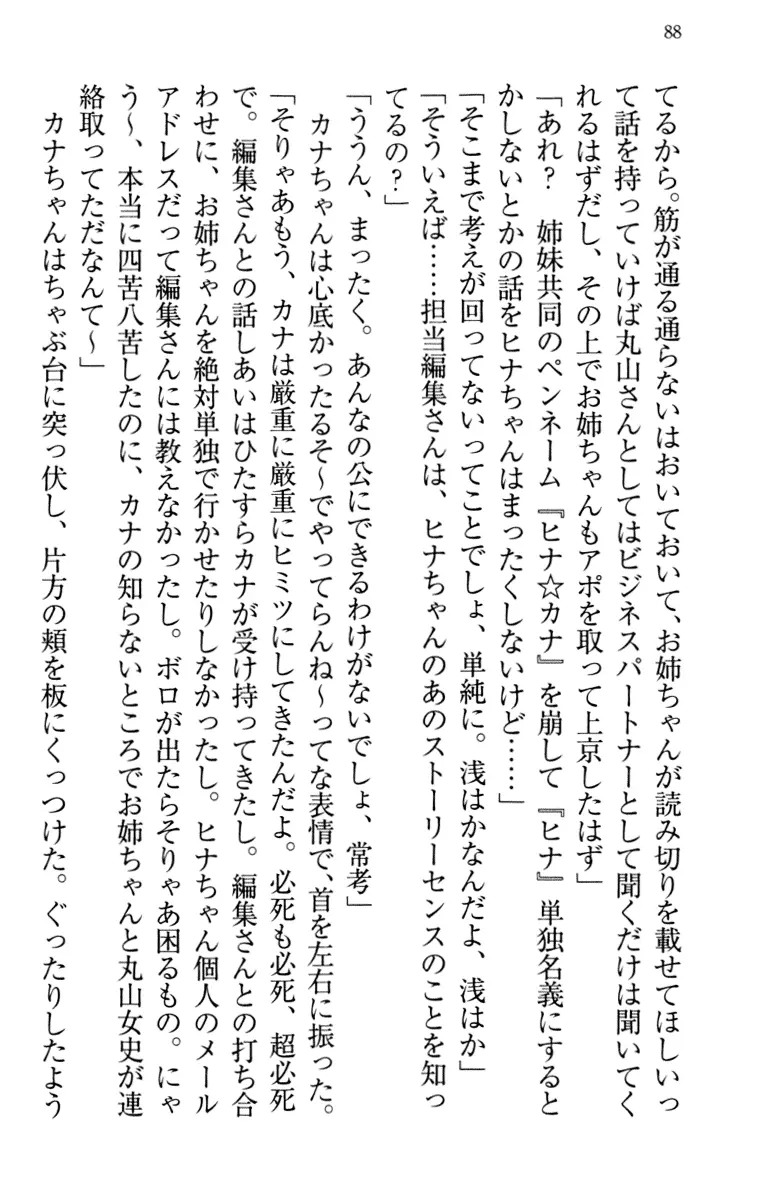 88
てるから。筋が通る通らないはおいておいて、お姉ちゃんが読み切りを載せてほしいっ
て話を持っていけば丸山さんとしてはビジネスパートナーとして聞くだけは聞いてく
れるはずだし、その上でお姉ちゃんもアポを取って上京したはず」
「あれ？　姉妹共同のペンネーム『ヒナ☆カナ』を崩して『ヒナ』単独名義にすると
かしないとかの話をヒナちゃんはまったくしないけど……」
「そこまで考えが回ってないってことでしょ、単純に。浅はかなんだよ、浅はか」
「そういえば……担当編集さんは、ヒナちゃんのあのストーリーセンスのことを知っ
てるの？」
「ううん、まったく。あんなの公にできるわけがないでしょ、常考」
カナちゃんは心底かったるそ～でやってらんね～ってな表情で、首を左右に振った。
「そりゃあもう、カナは厳重に厳重にヒミツにしてきたんだよ。必死も必死、超必死
で。編集さんとの話しあいはひたすらカナが受け持ってきたし。編集さんとの打ち合
わせに、お姉ちゃんを絶対単独で行かせたりしなかったし。ヒナちゃん個人のメール
アドレスだって編集さんには教えなかったし。ボロが出たらそりゃあ困るもの。にゃ
う～、本当に四苦八苦したのに、カナの知らないところでお姉ちゃんと丸山女史が連
絡取ってただなんて～」
カナちゃんはちゃぶ台に突っ伏し、片方の頬を板にくっつけた。ぐったりしたよう